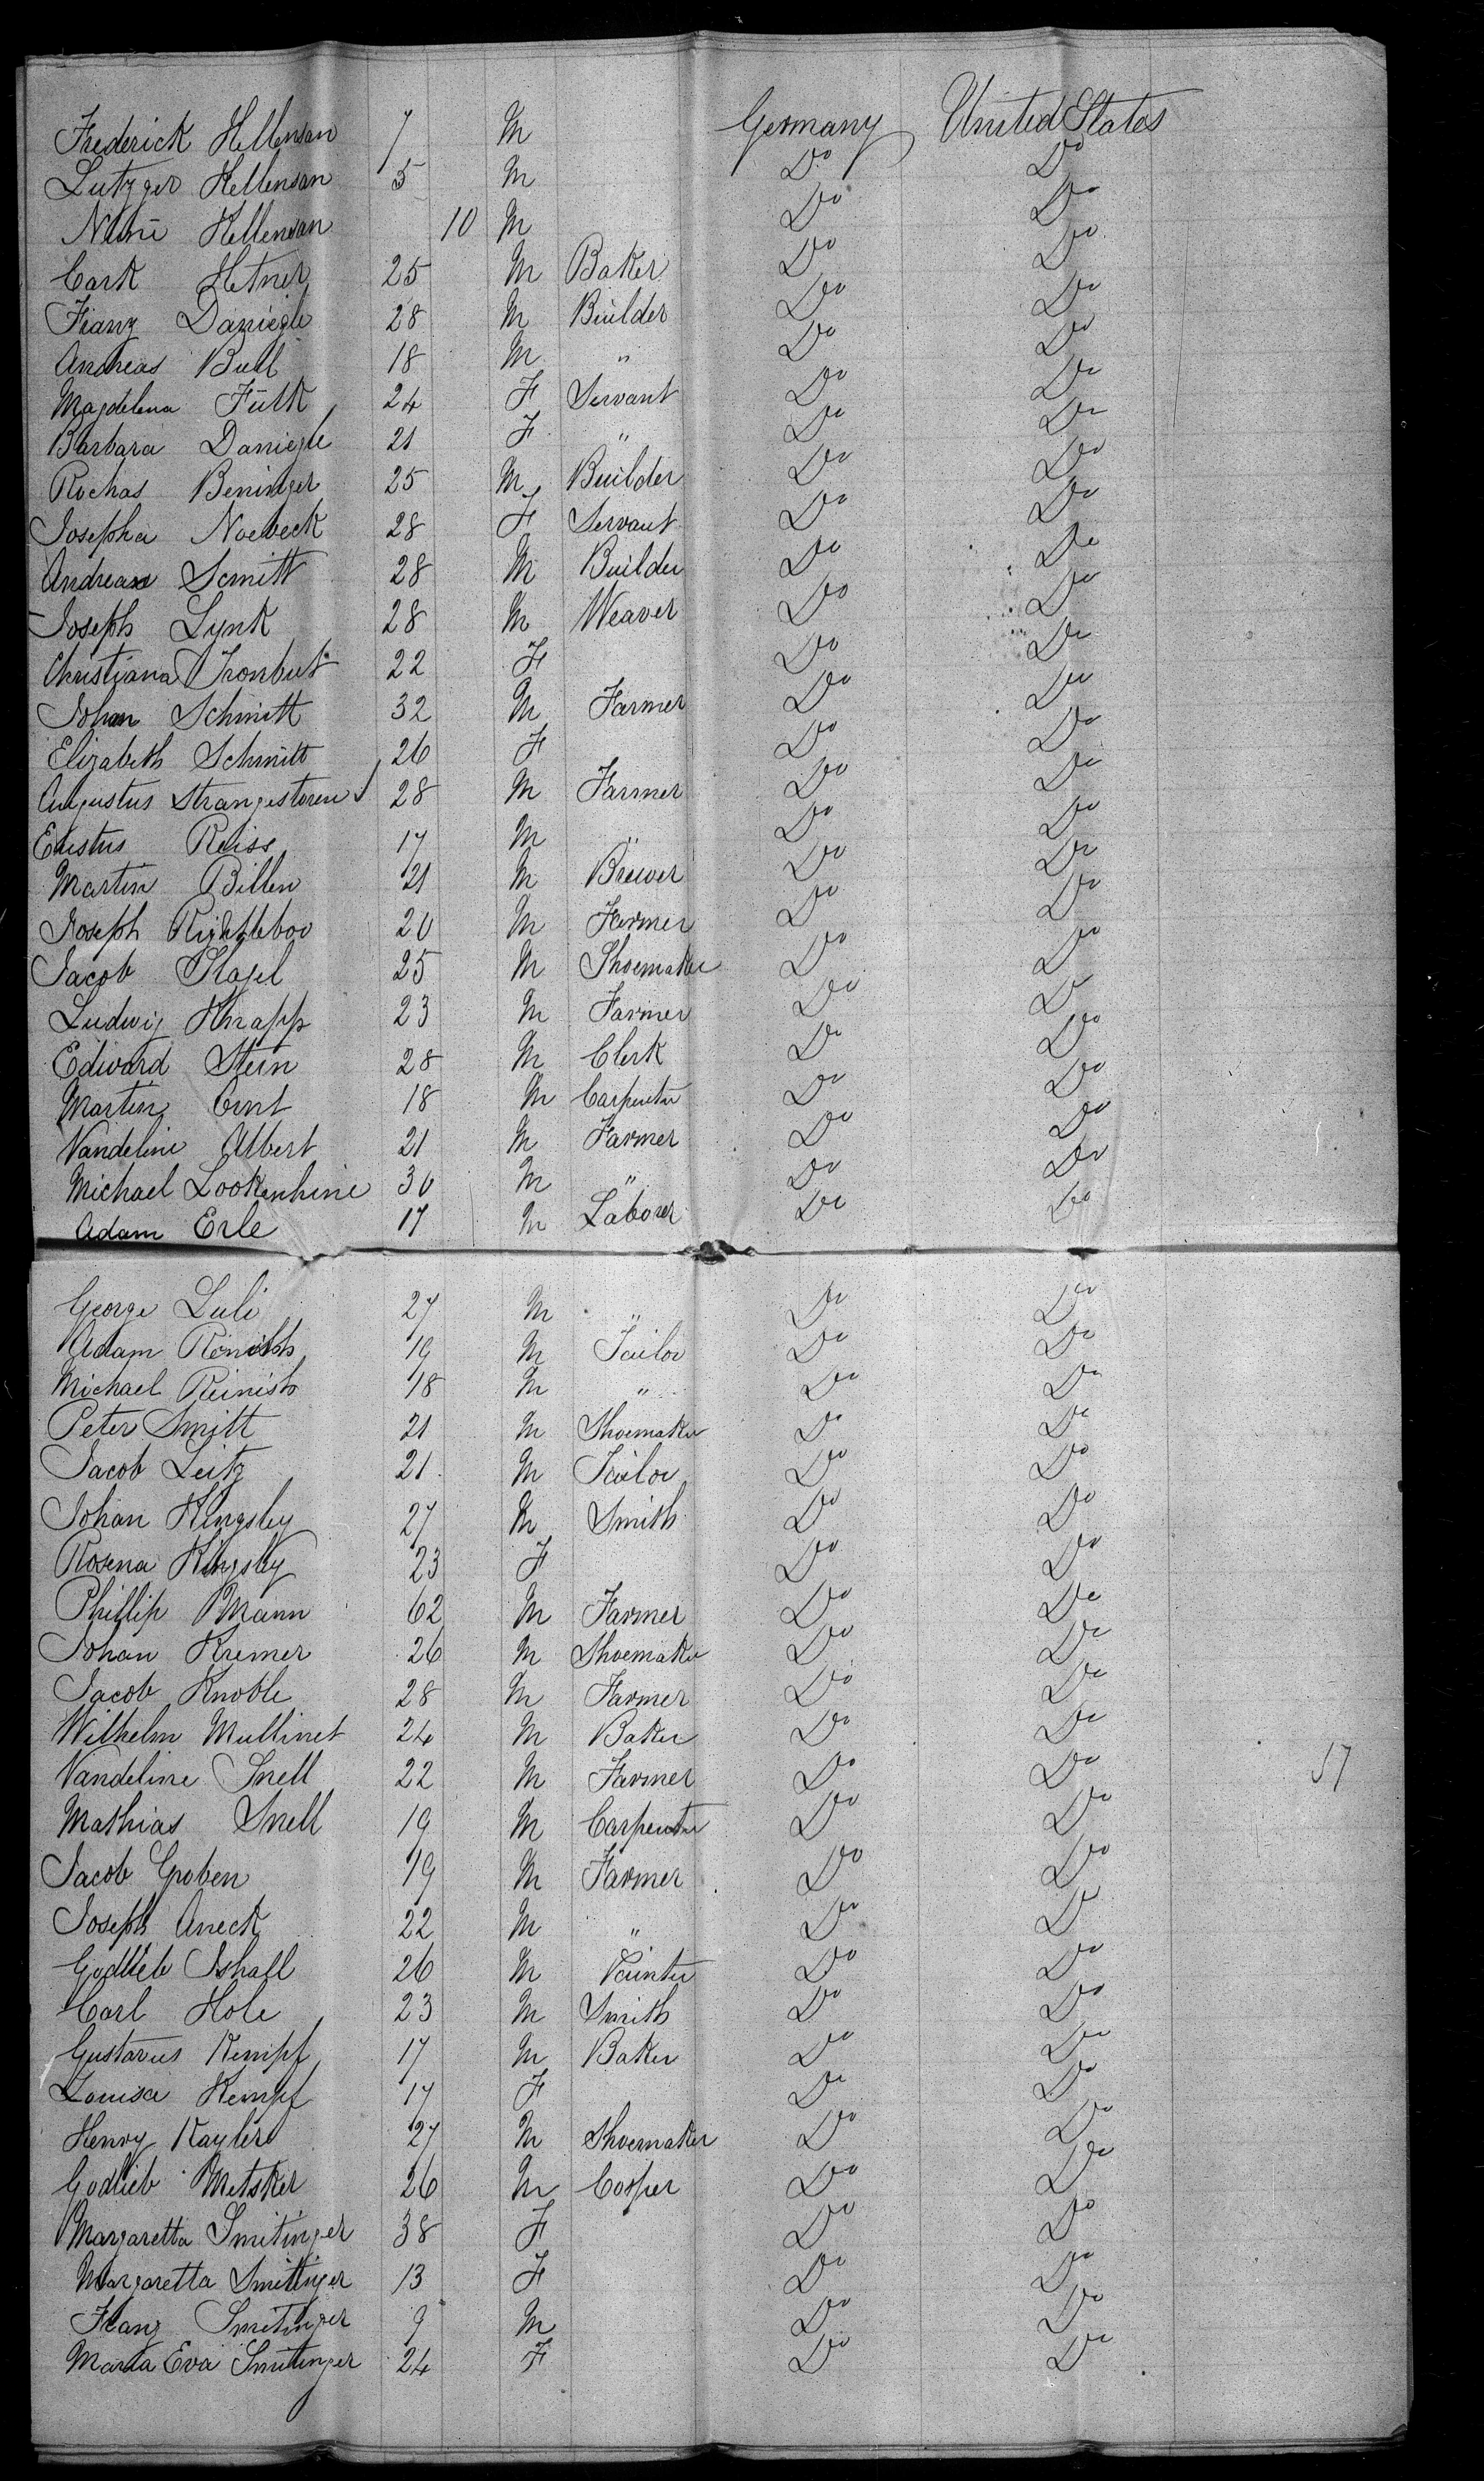 Frederick Hellensan 7 M Germany United States
Lutzger Hellensan 5 M Do Do
Hellensan 10 M Do Do
Cark Hetner 25 M Baker Do Do
Franz Daniegle 28 M Builder Do Do
Andreas Bull 18 M " Do Do
Magdelena Fütk 24 F Servant Do Do
Barbara Daniegle 21 F " Do Do
Rochas Beninger 25 M Builder Do Do
Josepha Noebeck 28 F Servant Do Do
Andreas Scmitt 28 M Builder Do Do
Joseph Lynk 28 M Weaver Do Do
Christiana Trombut 22 F Do Do
Johan Schmitt 32 M Farmer Do Do
Elizabeth Schmitt 26 F Do Do
Augustus Strangestoren 28 M Farmer Do Do
Erustus Reiss 17 M " Do Do
Martin Billen 21 M Brewer Do Do
Joseph Rightlebor 20 M Farmer Do Do
Jacob Slagel 25 M Shoemaker Do Do
Ludwig Knapp 23 M Farmer Do Do
Edward Stein 28 M Clerk Do Do
Martin Ernt 18 M Carpenter Do Do
Vandeline Albert 21 M Farmer Do Do
Michael Lookenhine 30 M " Do Do
Adam Erle 17 M Laborer Do Do
George Luli 27 M " Do Do
Adam 19 M Tailor Do Do
Michael Reinish 18 M " Do Do
Peter Smitt 21 M Shoemaker Do Do
Jacob Leitz 21 M Tailor Do Do
Johan Kingsley 27 M Smith Do Do
Rosena Kingsley 23 F Do Do
Phillip Mann 62 M Farmer Do Do
Johan Kremer 26 M Shoemaker Do Do
Jacob Knoble 28 M Farmer Do Do
Wilhelm Mullinet 24 M Baker Do Do
Vandeline Snell 22 M Farmer Do Do 17
Mathias Snell 19 M Carpenter Do Do
Jacob Groben 19 M Farmer Do Do
Joseph Aneck 22 M " Do Do
Godlieb Ishall 26 M Painter Do Do
Carl Hole 23 M Smith Do Do
Gustavus Kempf 17 M Baker Do Do
Louisa Kempf 17 F Do Do
Henry Kayler 27 M Shoemaker Do Do
Godlieb Metsker 26 M Cooper Do Do
Margaretta Smitinger 38 F Do Do
Margaretta Smittinger 13 F Do Do
Franz Smitinger 9 M Do Do
Maria Eva Smitinger 24 F Do Do